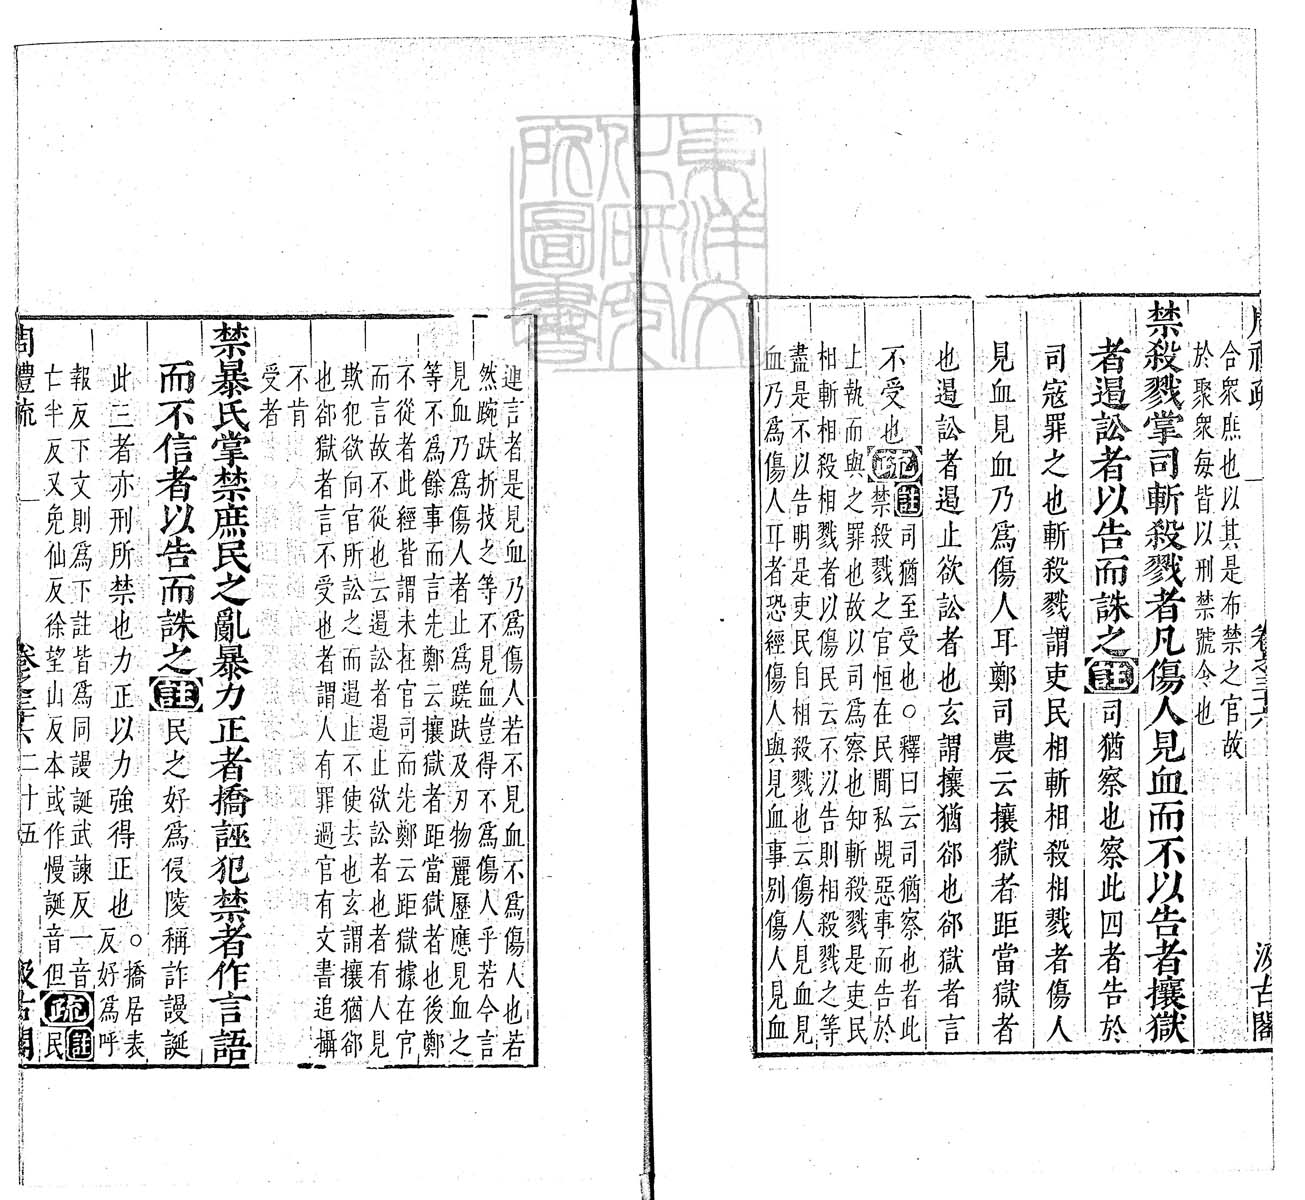 合衆庶也以其是布禁之官故
於聚衆每皆以刑禁號令也
禁殺戮掌司斬殺戮者凡傷人見血而不以告者攘獄
者遏訟者以告而誅之註司猶察也察此四者告於
司寇罪之也斬殺戮謂吏民相斬相殺相戮者傷人
見血見血乃為傷人耳鄭司農云攘獄者距當獄者
也遏訟者遏止欲訟者也玄謂攘猶郤也郤獄者言
不受也疏
註司猶至受也○釋曰云司猶察也者此
禁殺戮之官恒在民間私覘惡事而告於
上執而與之罪也故以司為察也知斬殺戮是吏民
相斬相殺相戮者以傷民云不以告則相殺戮之等
盡是不以告明是吏民自相殺戮也云傷人見血見
血乃為傷人耳者恐經傷人與見血事別傷人見血
連言者是見血乃為傷人若不見血不為傷人也若
然踠跌折技之等不見血豈得不為傷人乎若今言
見血乃為傷人者止為蹉跌及刃物麗歷應見血之
等不為餘事而言先鄭云攘獄者距當獄者也後鄭
不從者此經皆謂未在官司而先鄭云距獄據在官
而言故不從也云遏訟者遏止欲訟者也者有人見
欺犯欲向官所訟之而遏止不使去也玄謂攘猶郤
也郤獄者言不受也者謂人有罪過官有文書追攝
不肯
受者
禁暴氏掌禁庶民之亂暴力正者撟誣犯禁者作言語
而不信者以告而誅之註民之好為侵陵稱詐謾誕
此三者亦刑所禁也力正以力強得正也
○撟居表
反好為呼
報反下文則為下註皆為同謾誕武諫反一音
亡半反又免仙反徐望山反本或作慢誕音但疏
註
民
周禮疏
卷之三十六
二十五
汲古閣
東洋文化研究所圖書